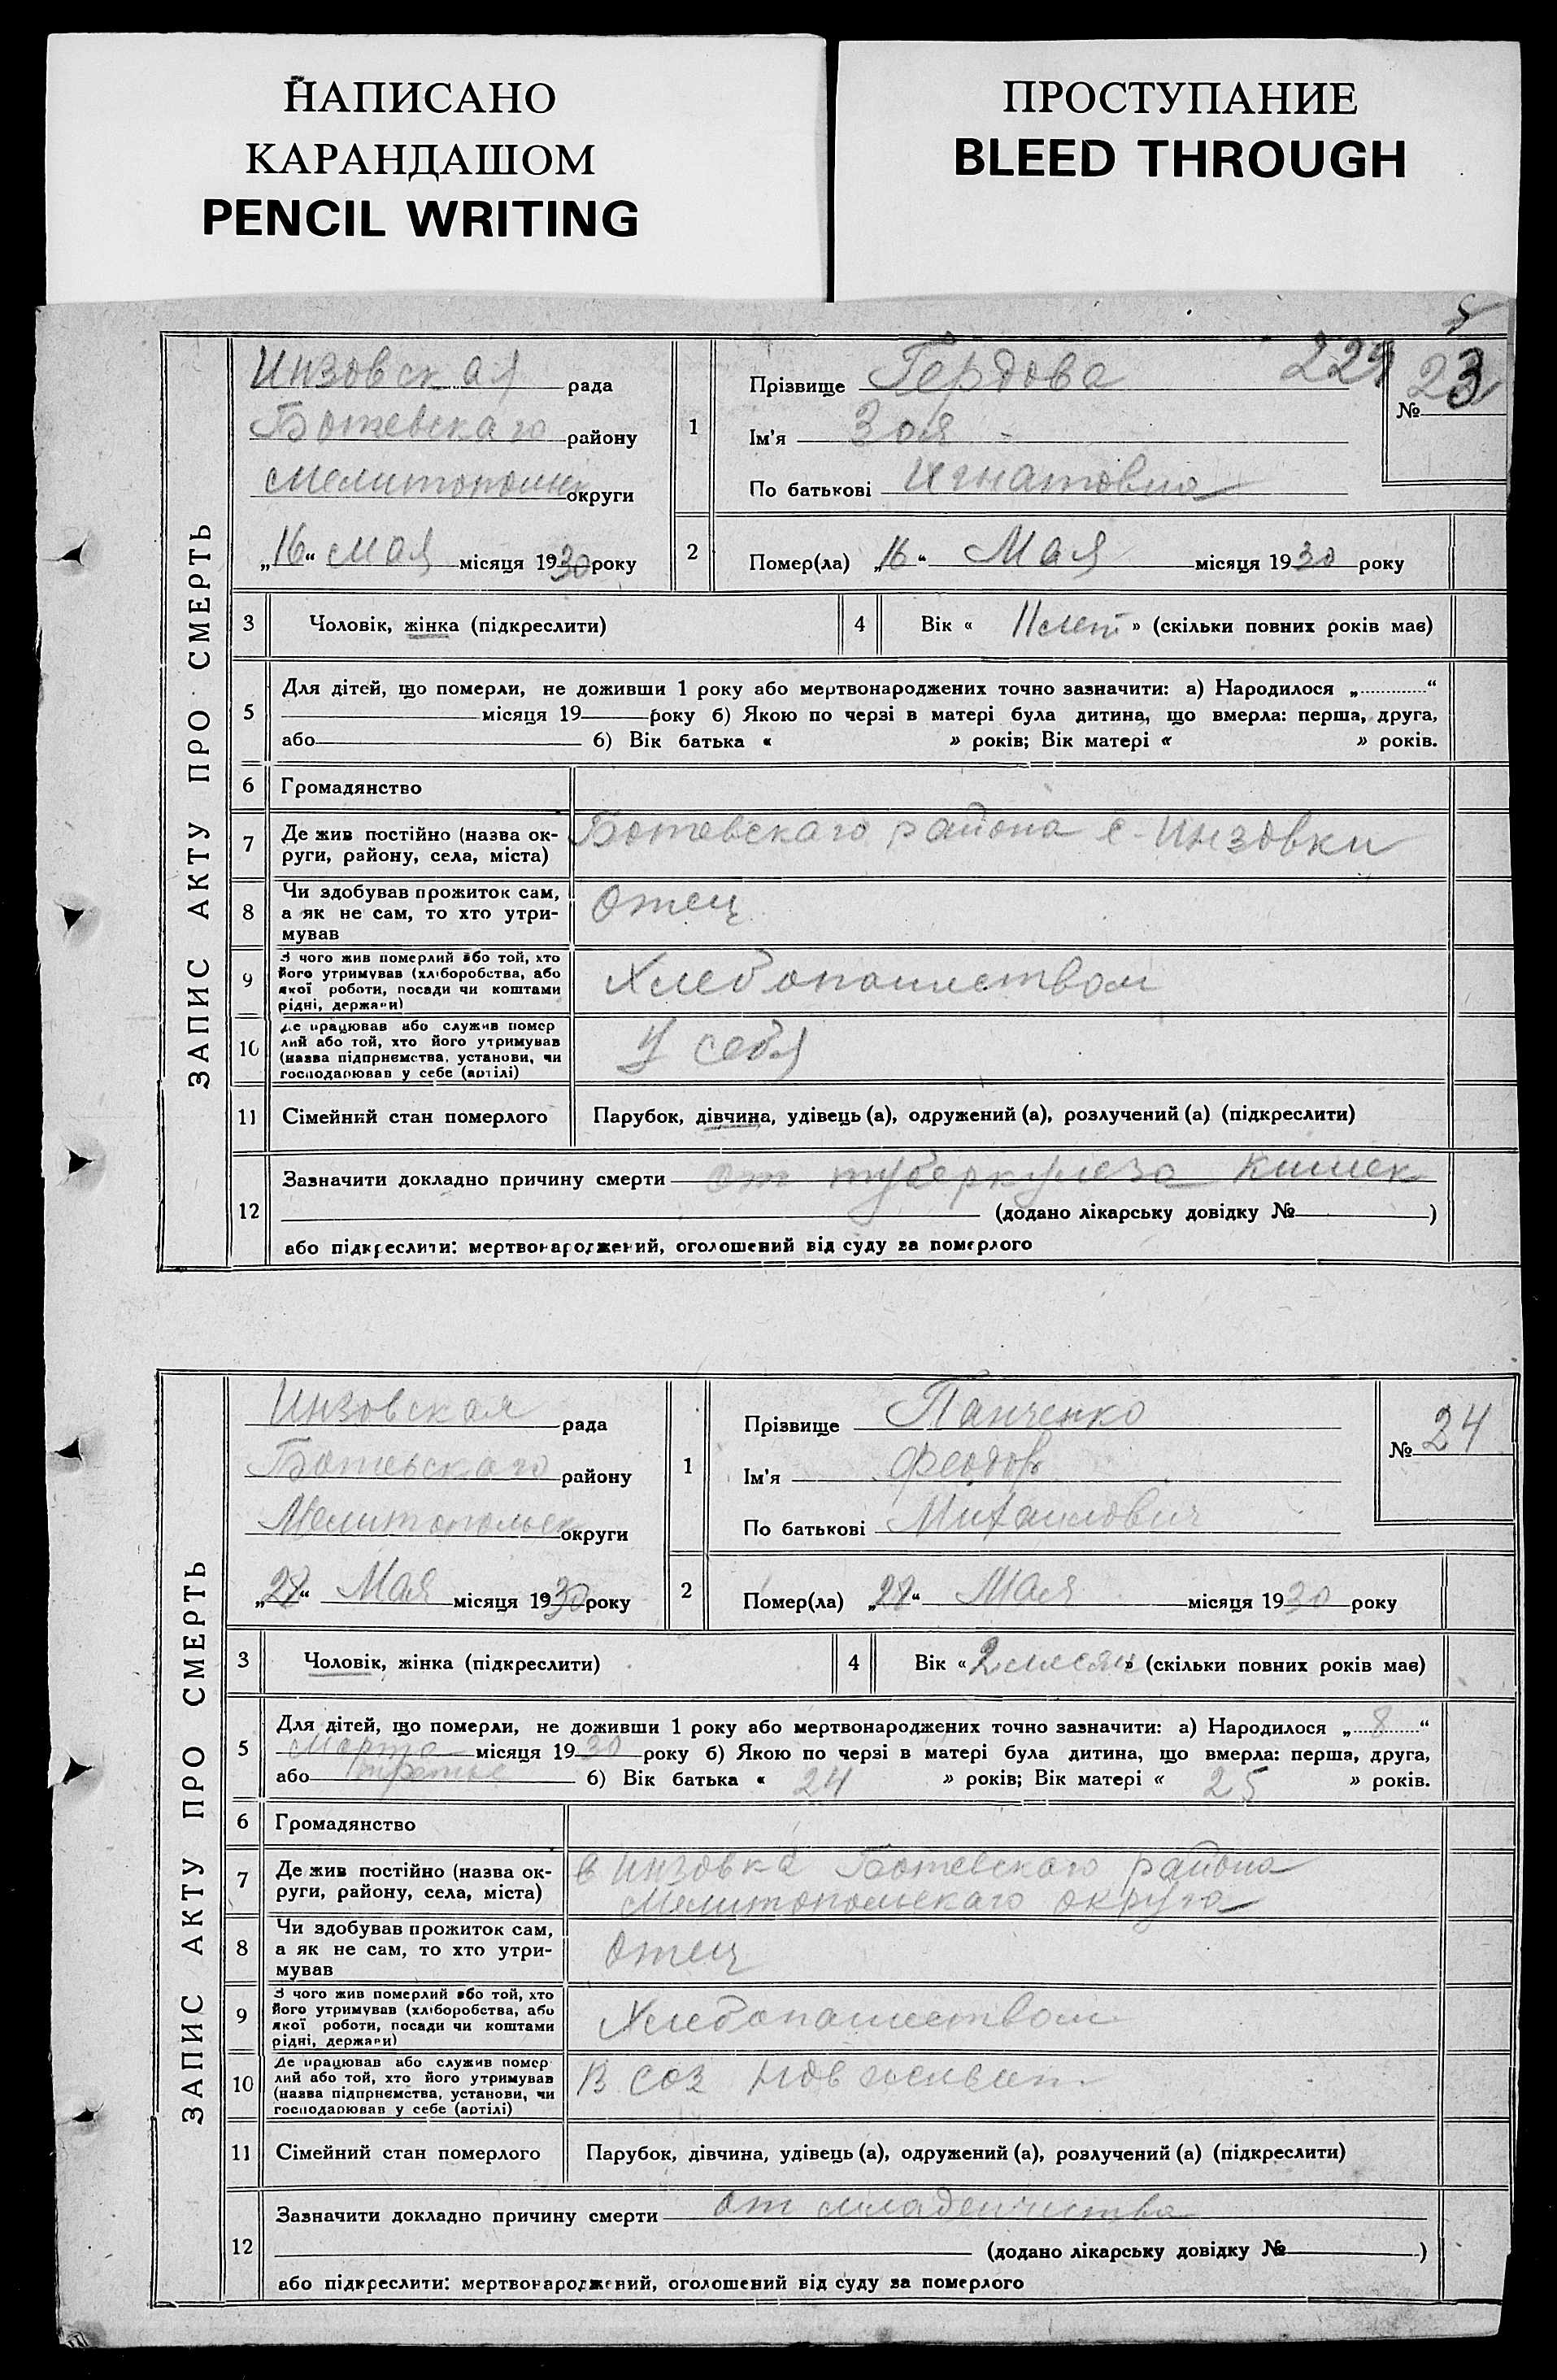 НАПИСАНО
КАРАНДАШОМ
PENCIL WRITING
ПРОСТУПАНИЕ
BLEED THROUGH
ЗАПИС АКТУ ПРО СМЕРТЬ
Инзовская рада
Ботевскаго району
Мелитопольск округи
„16“ Мая місяця 1930 року
1
Прізвище Гердова
229
Ім'я Зоя
По батькові Игнатовна
№ 23
2
Помер(ла) „16“ Мая місяця 1930 року
3 Чоловік, жінка (підкреслити)
4 Вік « 11 лет » (скільки повних років має)
5 Для дітей, що померли, не доживши 1 року або мертвонароджених точно зазначити: а) Народилося „ “
місяця 19 року б) Якою по черзі в матері була дитина, що вмерла: перша, друга,
або б) Вік батька « » років; Вік матері « » років.
6 Громадянство
7 Де жив постійно (назва ок-
руги, району, села, міста)
Ботевскаго района с. Инзовки
8 Чи здобував прожиток сам,
а як не сам, то хто утри-
мував
Отец
9 З чого жив померлий або той, хто
його утримував (хліборобства, або
якої роботи, посади чи коштами
рідні, держави)
Хлебопашеством
10 Де працював або служив помер
лий або той, хто його утримував
(назва підприємства, установи, чи
господарював у себе (артілі)
У себя
11 Сімейний стан померлого
Парубок, дівчина, удівець (а), одружений (а), розлучений (а) (підкреслити)
12 Зазначити докладно причину смерти от туберкулеза кишек
(додано лікарську довідку № )
або підкреслити: мертвонароджений, оголошений від суду за померлого
ЗАПИС АКТУ ПРО СМЕРТЬ
Инзовская рада
Ботевскаго району
Мелитопольск округи
„28“ Мая місяця 1930 року
1
Прізвище Панченко
Ім'я Феодор
По батькові Михаилович
№ 24
2
Помер(ла) „28“ Мая місяця 1930 року
3 Чоловік, жінка (підкреслити)
4 Вік « 2 месяц » (скільки повних років має)
5 Для дітей, що померли, не доживши 1 року або мертвонароджених точно зазначити: а) Народилося „ 8 “
марта місяця 1930 року б) Якою по черзі в матері була дитина, що вмерла: перша, друга,
або третье б) Вік батька « 24 » років; Вік матері « 25 » років.
6 Громадянство
7 Де жив постійно (назва ок-
руги, району, села, міста)
в Инзовка Ботевскаго района
Мелитопольскаго округа
8 Чи здобував прожиток сам,
а як не сам, то хто утри-
мував
Отец
9 З чого жив померлий або той, хто
його утримував (хліборобства, або
якої роботи, посади чи коштами
рідні, держави)
Хлебопашеством
10 Де працював або служив помер
лий або той, хто його утримував
(назва підприємства, установи, чи
господарював у себе (артілі)
В Соз
11 Сімейний стан померлого
Парубок, дівчина, удівець (а), одружений (а), розлучений (а) (підкреслити)
12 Зазначити докладно причину смерти от младенчества
(додано лікарську довідку № )
або підкреслити: мертвонароджений, оголошений від суду за померлого